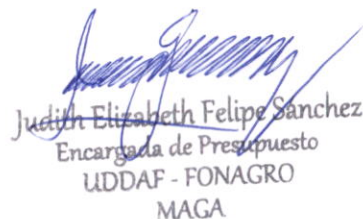 Judith Elizabeth Felipe Sanchez
Encargada de Presupuesto
UDDAF - FONAGRO
MAGA